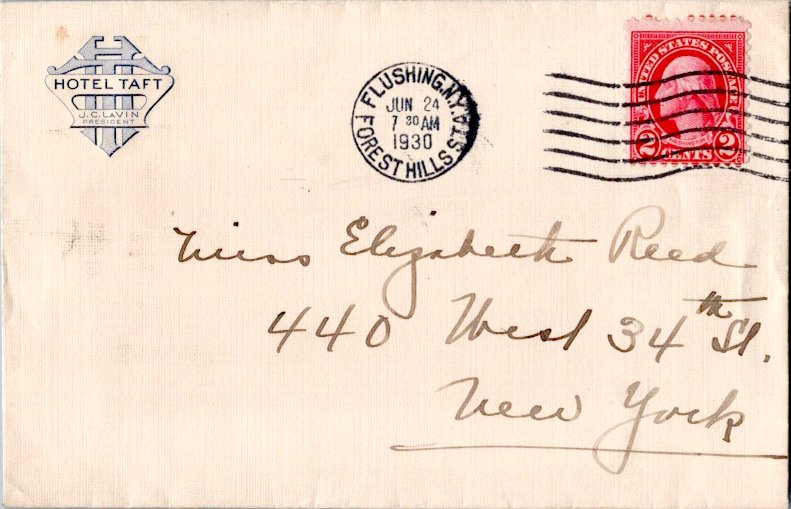 HOTEL TAFT
J.C. LAVIN
PRESIDENT
FLUSHING, N.Y.
JUN 24
7 30 AM
1930
FOREST HILLS STA.
UNITED STATES POSTAGE
2 CENTS 2
Miss Elizabeth Reed
440 West 34th St.
New York